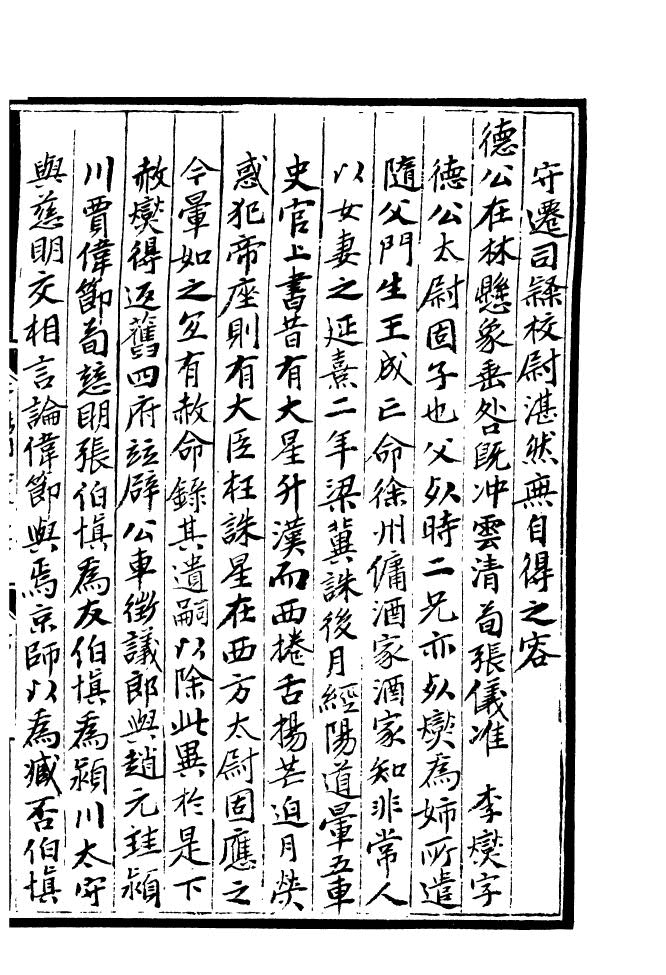 守遷司隸校尉湛然無自得之容
德公在林懸象垂咎既沖雲清荀張儀准　李燮字
德公太尉固子也父死時二兄亦死燮為姊所遣
隨父門生王成亡命徐州傭酒家酒家知非常人
以女妻之延熹二年梁冀誅後月經陽道暈五車
史官上書昔有大星升漢而西捲舌揚芒迫月熒
惑犯帝座則有大臣枉誅星在西方太尉固應之
今暈如之宜有赦命錄其遺嗣以除此異於是下
赦燮得返舊四府並辟公車徵議郎與趙元珪潁
川賈偉節荀慈明張伯慎為友伯慎為潁川太守
與慈明交相言論偉節與焉京師以為臧否伯慎